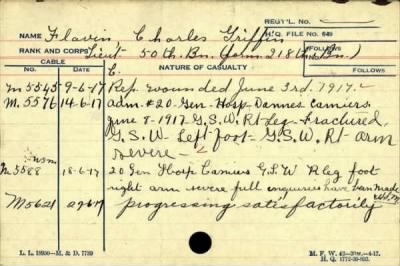 REGT'L. NO.
NAME Flavin, Charles Griffin
H.Q. FILE NO. 649
RANK AND CORPS Lieut. 50th. Bn. (form. 218th. Bn.)
FOLLOWS
CABLE
NO. DATE
NATURE OF CASUALTY
FOLLOWS
C.
M 5545 9-6-17 Rep. wounded June 3rd. 1917.
M. 5576 14-6-17 adm. #20. Gen. Hosp. Dannes Camiers
June 8-1917 G.S.W. Rt. Leg - Fractured.
G.S.W. Left foot - G.S.W. Rt. arm
severe -
M 5588 18-6-17 20 Gen Hosp Camiers G.S.W R leg foot
right arm severe full enquiries have been made
M5621 progressing satisfactorily
L. L. 18950—M. & D. 7759
M. F. W. 42
H. Q. 1772-39-893.